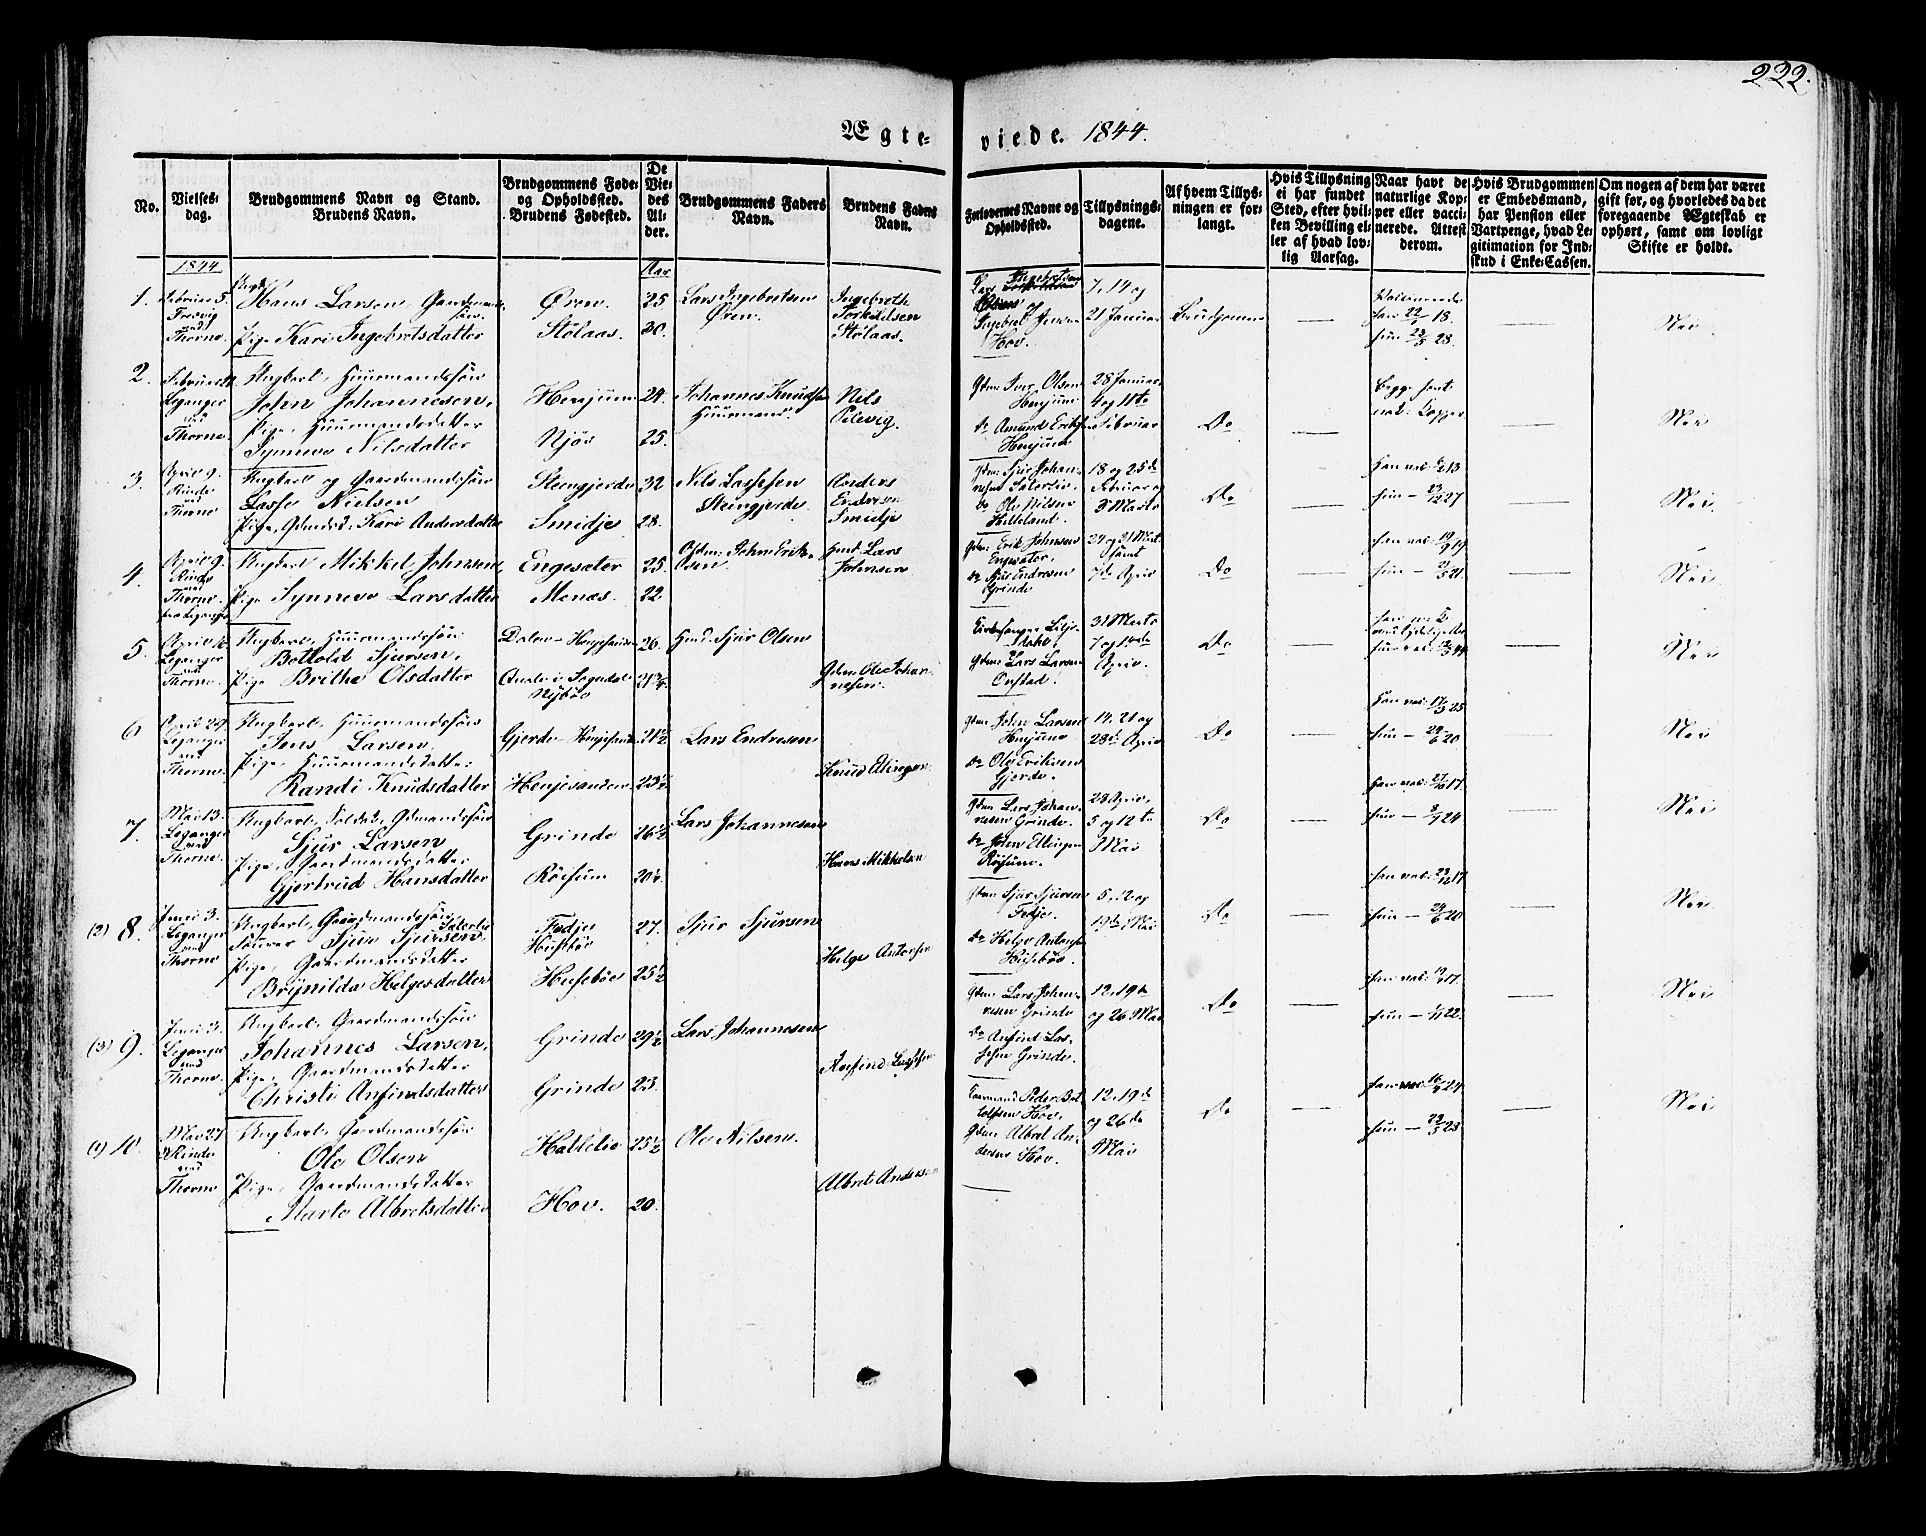 222.
Ægte- viede. 1844.
No.
Vielses-
dag.
Brudgommens Navn og Stand.
Brudens Navn.
Brudgommens Føde-
og Opholdssted.
Brudens Fødested.
De
Vie-
des
Al-
der.
Brudgommens Faders
Navn.
Brudens Faders
Navn.
Forlovernes Navne og
Opholdssted.
Tillysnings-
dagene.
Af hvem Tillys-
ningen er for-
langt.
Hvis Tillysning
ei har fundet
Sted, efter hvil-
ken Bevilling el-
ler af hvad lov-
lig Aarsag.
Naar havt de
naturlige Kop-
per eller vacci-
nerede. Attest
derom.
Hvis Brudgommen
er Embedsmand,
har Pension eller
Vartpenge, hvad Le-
gitimation for Ind-
skud i Enke-Cassen.
Om nogen af dem har været
gift før, og hvorledes da det
foregaaende Ægteskab er
ophørt, samt om lovligt
Skifte er holdt.
1844
Aar
1. Februar 5.
Hans Larsen, Gaardmands-
søn. Øren. 25 Lars Ingebretsen
Øren. Ingebreth
Torkildsen
Stølaas.
Thorne Pige Kari Ingebretsdatter Stølaas. 20.
Lars Ingebretsen
og
Ingebret Jensen
Hov.
7, 14 og
21 Januar Brudgommen — han 22/1 18.
hun 23/5 28. — Nei
2. Leganger
ved
Thorne.
Ungkarl, Huusmandssøn
John Johannesen,
Pige, Huusmandsdatter
Synneve Nilsdatter
Henjum 24.
Njøs 25.
Johannes Knudsen
Huusmand.
Nils
Pilevig.
Gdm: Iver Olsen
Henjum
do Amund Eriksen
Henjum
28 Januar,
4 og 11te
Februar
Do — begge havt
nat: Kopper — Nei
3. April 9.
Rinde
Thorne
Ungkarl og Gaardmandssøn
Lasse Nielsen
Pige, Gdmdsd. Kari Andersdatter
Steingjerde 32
Smidje 28.
Nils Lassesen
Steingjerde.
Anders
Endresen
Smidje
Gdm: Sjur Johan-
nesen
do Ole Nilsen
Hilleland.
18 og 25de
Februar og
3 Marts
Do — Han vac: 13
hun — 27 — Nei
4. April 9.
Rinde
ved
Thorne.
Ungkarl Mikkel Johnsen
Pige Synneve Larsdatter
Engeseter 25.
Menes. 22.
Gdm: John Erik-
sen
Lars
Johnsen
Gdm: Erik Johnsen
Engeseter,
do Endresen
Grinde
24 og 31 Mart
samt
7de April
Do — han vac: 19/9 19
hun — 21/5 21. — Nei
5. April
Leganger
ved
Thorne.
Ungkarl, Huusmandssøn
Botholf Sjursen,
Pige Brithe Olsdatter
26.
i Sogndal
Nybøe
Sjur Olsen
Gdm: Ole Johan-
nesen.
Kirkesanger
Gdm: Lars Larsen
31 Marts
7 og 14de
April.
Do — — Nei
6 April 29.
Leganger
ved
Thorne.
Ungkarl, Huusmandssøn
Jens Larsen.
Pige, Huusmandsdatter
Randi Knudsdatter
Gjerde 21½
Henjesanden 23½
Lars Endresen
Knud Ellingsen
Gdm: John Larsen
Henjum
do Ole Eriksen
Gjerde.
14, 21 og
28de April
Do — Han vac: 17/5 25
hun — 24/6 20 — Nei
7. Mai 13.
Leganger
ved
Thorne.
Ungkarl, Soldat, Gdmandssøn
Sjur Larsen
Pige, Gaardmandsdatter
Gjertrud Hansdatter
Grinde 26½
Røisum 20½.
Lars Johannesen
Hans Mikkelsen
Gdm: Lars Johan-
nesen Grinde.
do John Ellingsen
Røisum.
28 April,
5 og 12te
Mai
Do — han vac: 17.
hun — 24 — Nei
(2) 8. Juni 3.
Leganger
ved
Thorne
Ungkarl, Gaardmandssøn,
Sjur Sjursen,
Pige, Gaardmandsdatter
Brynilda Helgesdatter
Fedje
Husebøe 27.
Husebøe 25½
Sjur Sjursen
Helge Andersen
Gdm: Sjur Sjursen
Fedje.
do Helge Andersen
Husebøe.
5, 12 og
19de Mai
Do — han vac: 17.
hun — 24/6 20 — Nei
(3) 9. Juni 3.
Leganger
ved
Thorne.
Ungkarl, Gaardmandssøn
Johannes Larsen,
Pige, Gaardmandsdatter
Christi Anfindsdatter
Grinde 29½
Grinde 23.
Lars Johannesen
Anfind Lassesen
Gdm: Lars Johan-
nesen Grinde
do Anfind Las-
sesen Grinde.
12, 19de
og 26 Mai
Do — han vac: 17.
hun — 22. — Nei
(1) 10. Mai 27
Rinde
ved
Thorne
Ungkarl, Gaardmandssøn
Ole Olsen
Pige, Gaardmandsdatter
Marte Albretsdatter
25½
Hov. 20.
Ole Nilsen.
Albret Andersen
Peder Bot-
tolfsen Hov.
Gdm: Albret An-
dersen Hov.
12, 19de
og 26de
Mai
Do — han vac: 24
hun — 23 — Nei